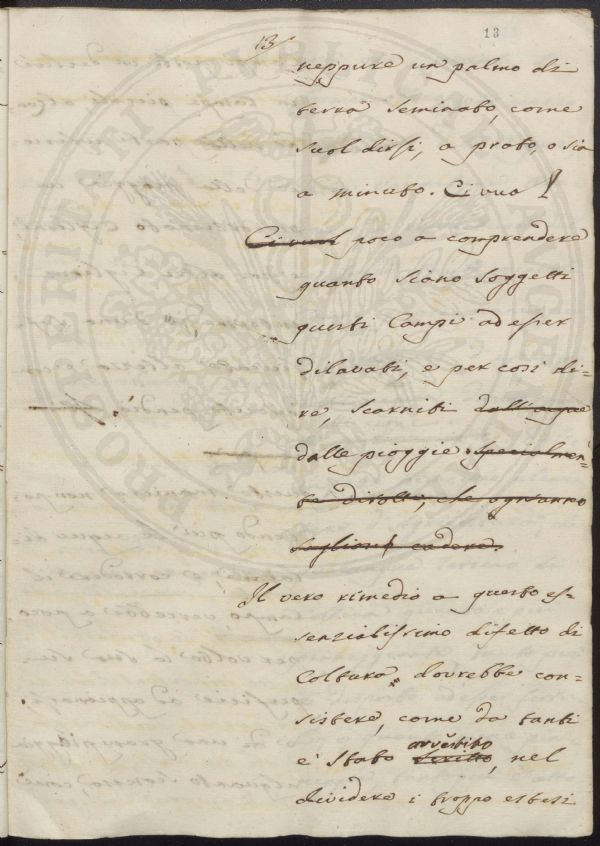 13
13
neppure un palmo di
terra seminato, come
suol dirsi, a prato, o sia
a minuto. Ci vuo
Ci vuol poco a comprendere
quanto siano soggetti
questi Campi ad esser
dilavati, e per così di=
re, scarniti dall'acque
dalle pioggie specialmen=
te dirotte, che ogn'anno
sogliono cadere.
Il vero rimedio a questo es=
senzialissimo difetto di
Coltura dovrebbe con=
sistere, come da tanti
avvertito
è stato scritto, nel
dividere i troppo estesi
PROSPERITATI PUBLICAE AUGENDAE